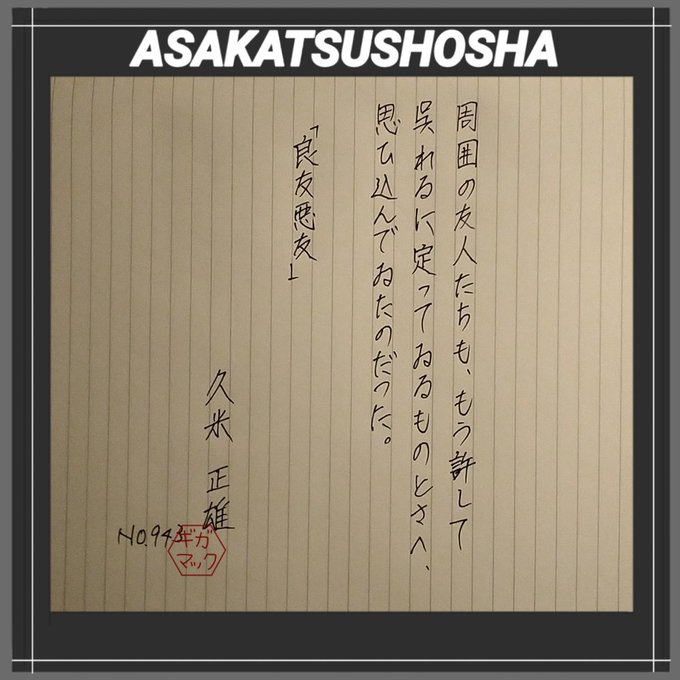 ASAKATSUSHOSHA
周囲の友人たちも、もう許して
呉れるに定ってゐるものとさへ、
思ひ込んでゐたのだった。
「良友悪友」
久米 正雄
No.943
ギガ
マック